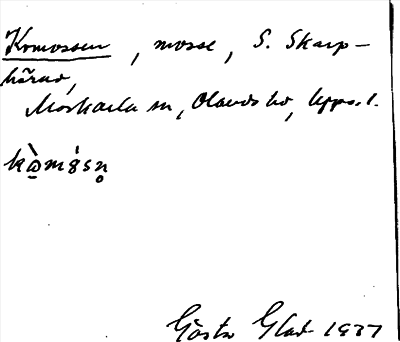 Komossen, mosse, S. Skarp-
härad,
Morkarla sn, Olands hd, Upps. l.
kò̤mósn̥
Gösta Glad 1937